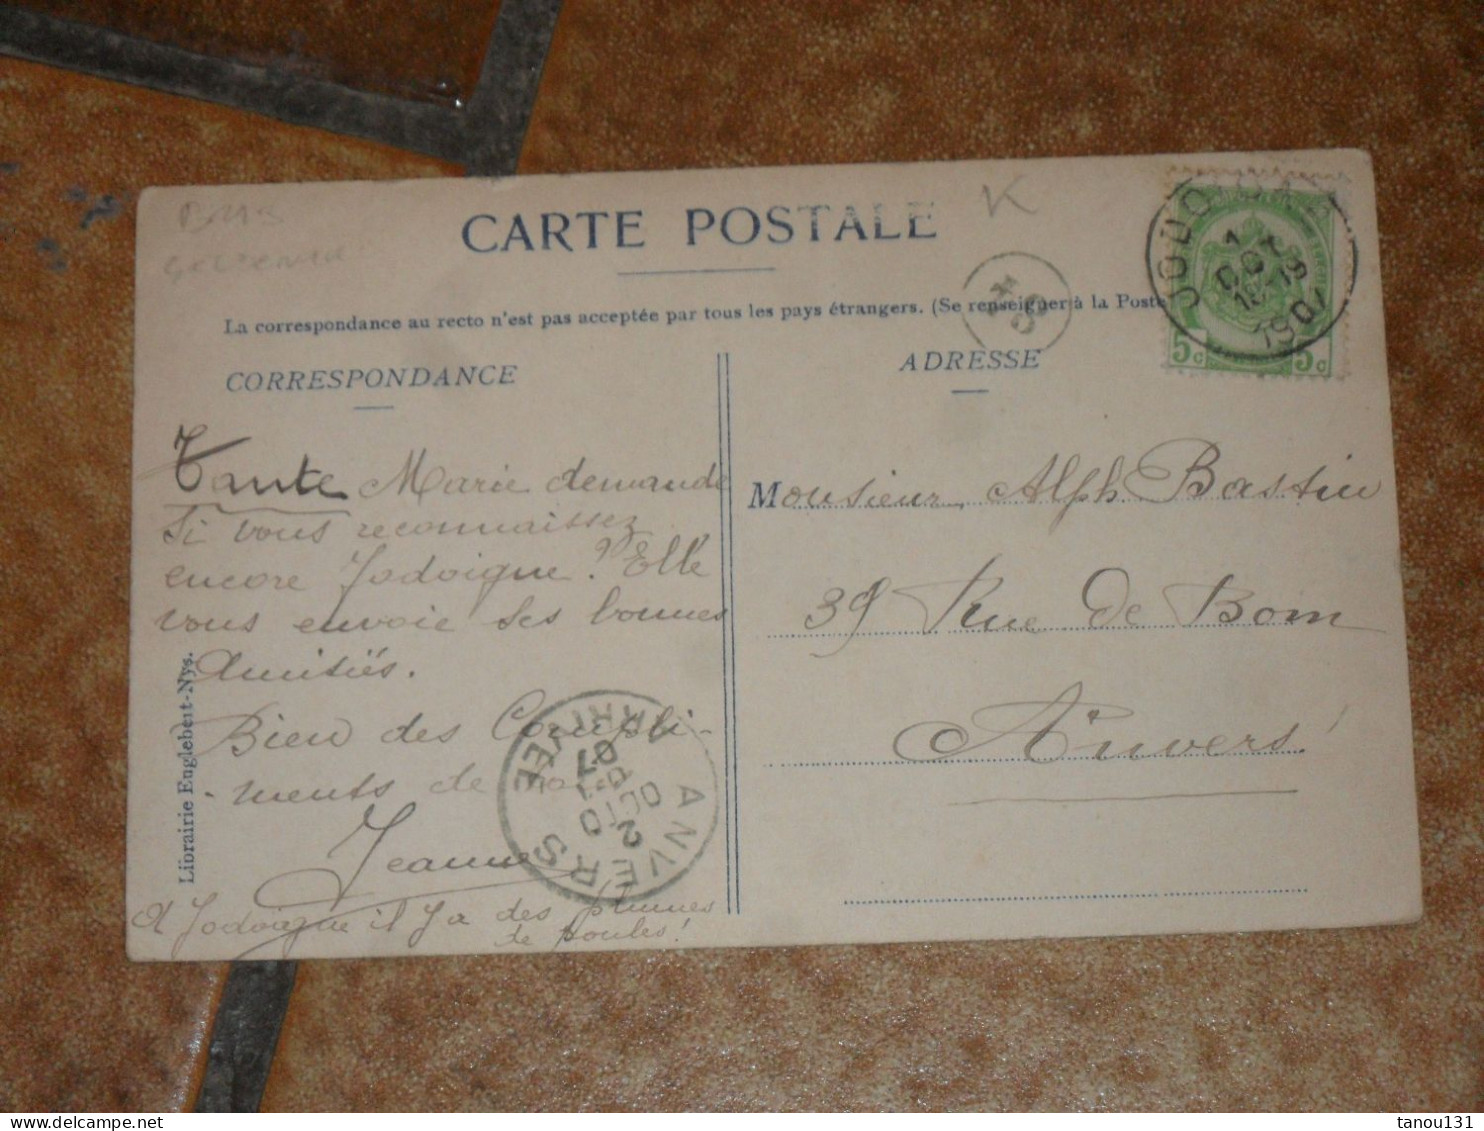 CARTE POSTALE
K
La correspondance au recto n'est pas acceptée par tous les pays étrangers. (Se renseigner à la Poste
CORRESPONDANCE
ADRESSE
JODOIGNE
1 OCT
18-19
1907
5c 5c
Tante Marie demande
si vous reconnaissez
encore Jodoigne? Elle
vous envoie ses bonnes
Amitiés.
Bien des Compli-
-ments de
Jeanne
A Jodoigne il y a des plumes
de poules!
Monsieur Alph Bastin
39 Rue de Bom
Anvers!
ANVERS
ARRIVÉE
2
OCTO
07
Librairie Englebert-Nys.
tanou131